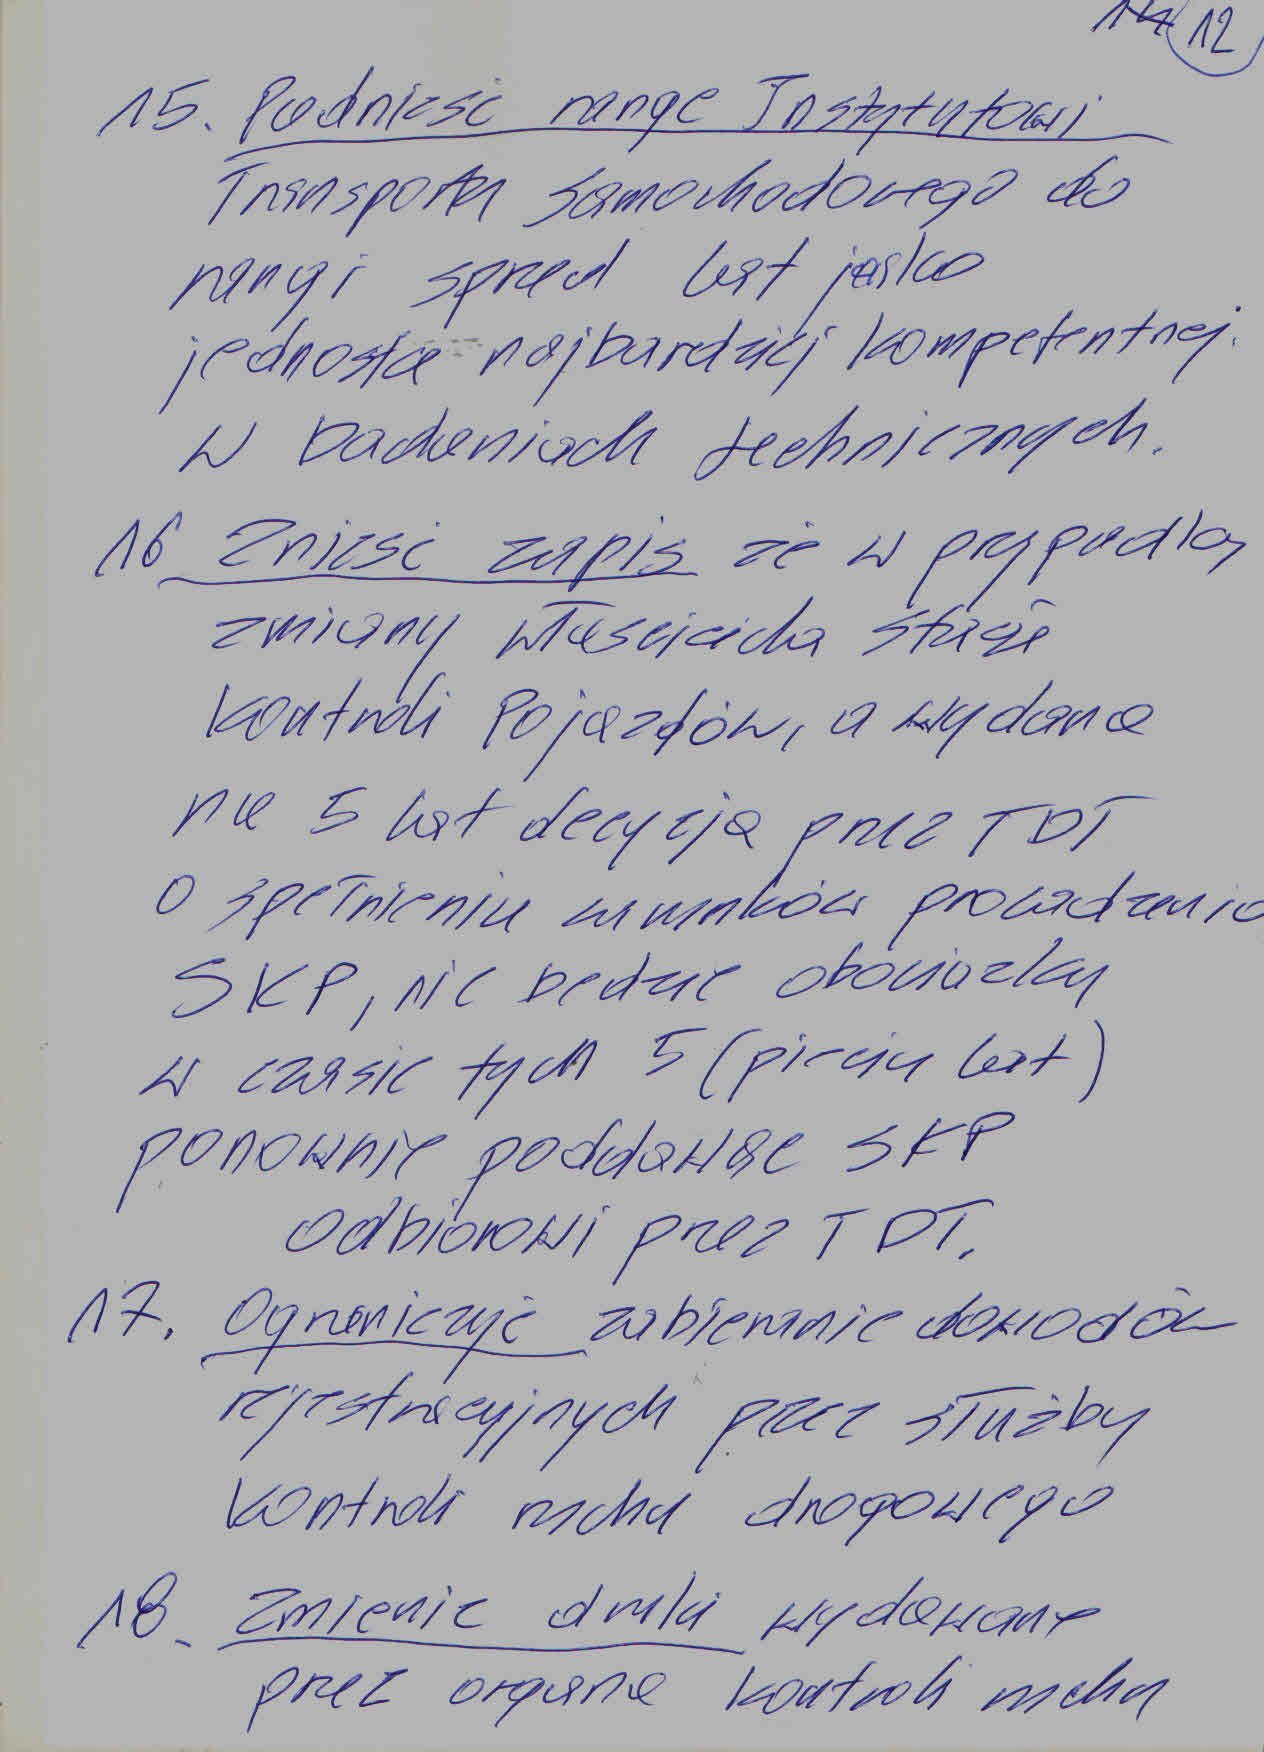 14 12
15. Podnieść rangę Instytutowi
Transportu Samochodowego do
rangi sprzed lat jako
jednostce najbardziej kompetentnej
w badaniach technicznych.
16 Znieść zapis że w przypadku
zmiany właściciela stacje
kontroli Pojazdów, a wydana
na 5 lat decyzja przez TDT
o spełnieniu warunków prowadzenia
SKP, nie będzie obowiązku
w czasie tych 5 (pięciu lat)
ponownie poddawać SKP
odbiorowi przez TDT.
17. Ograniczyć zabieranie dowodów
rejestracyjnych przez służby
kontroli ruchu drogowego
18. Zmienić druki wydawane
przez organa kontroli ruchu